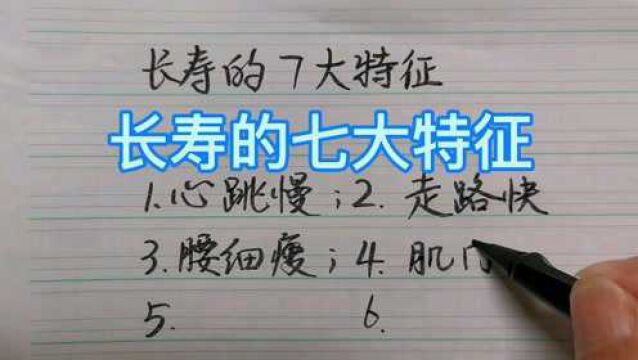 长寿的7大特征
长寿的七大特征
1.心跳慢；2.走路快
3.腰细瘦；4.肌
5. 6.